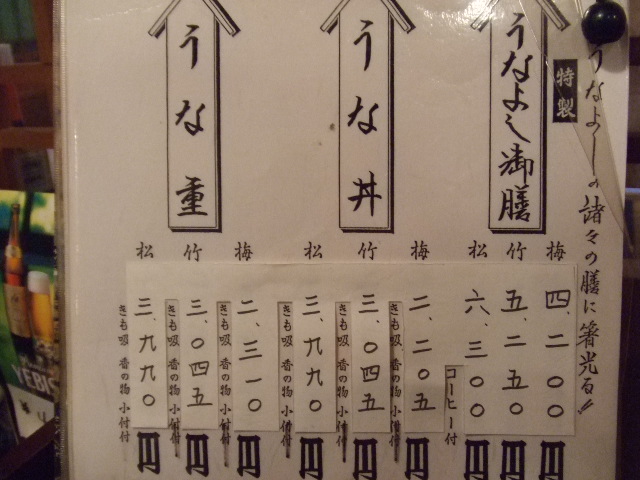 うなよしの諸々の膳に箸光る!!
特製
うなよし御膳
梅 四、二〇〇円
竹 五、二五〇円
松 六、三〇〇円
コーヒー付
うな丼
梅 二、二〇五円
きも吸 香の物 小付付
竹 三、〇四五円
きも吸 香の物 小付付
松 三、九九〇円
きも吸 香の物 小付付
うな重
梅 二、三一〇円
きも吸 香の物 小付付
竹 三、〇四五円
きも吸 香の物 小付付
松 三、九九〇円
YEBIS